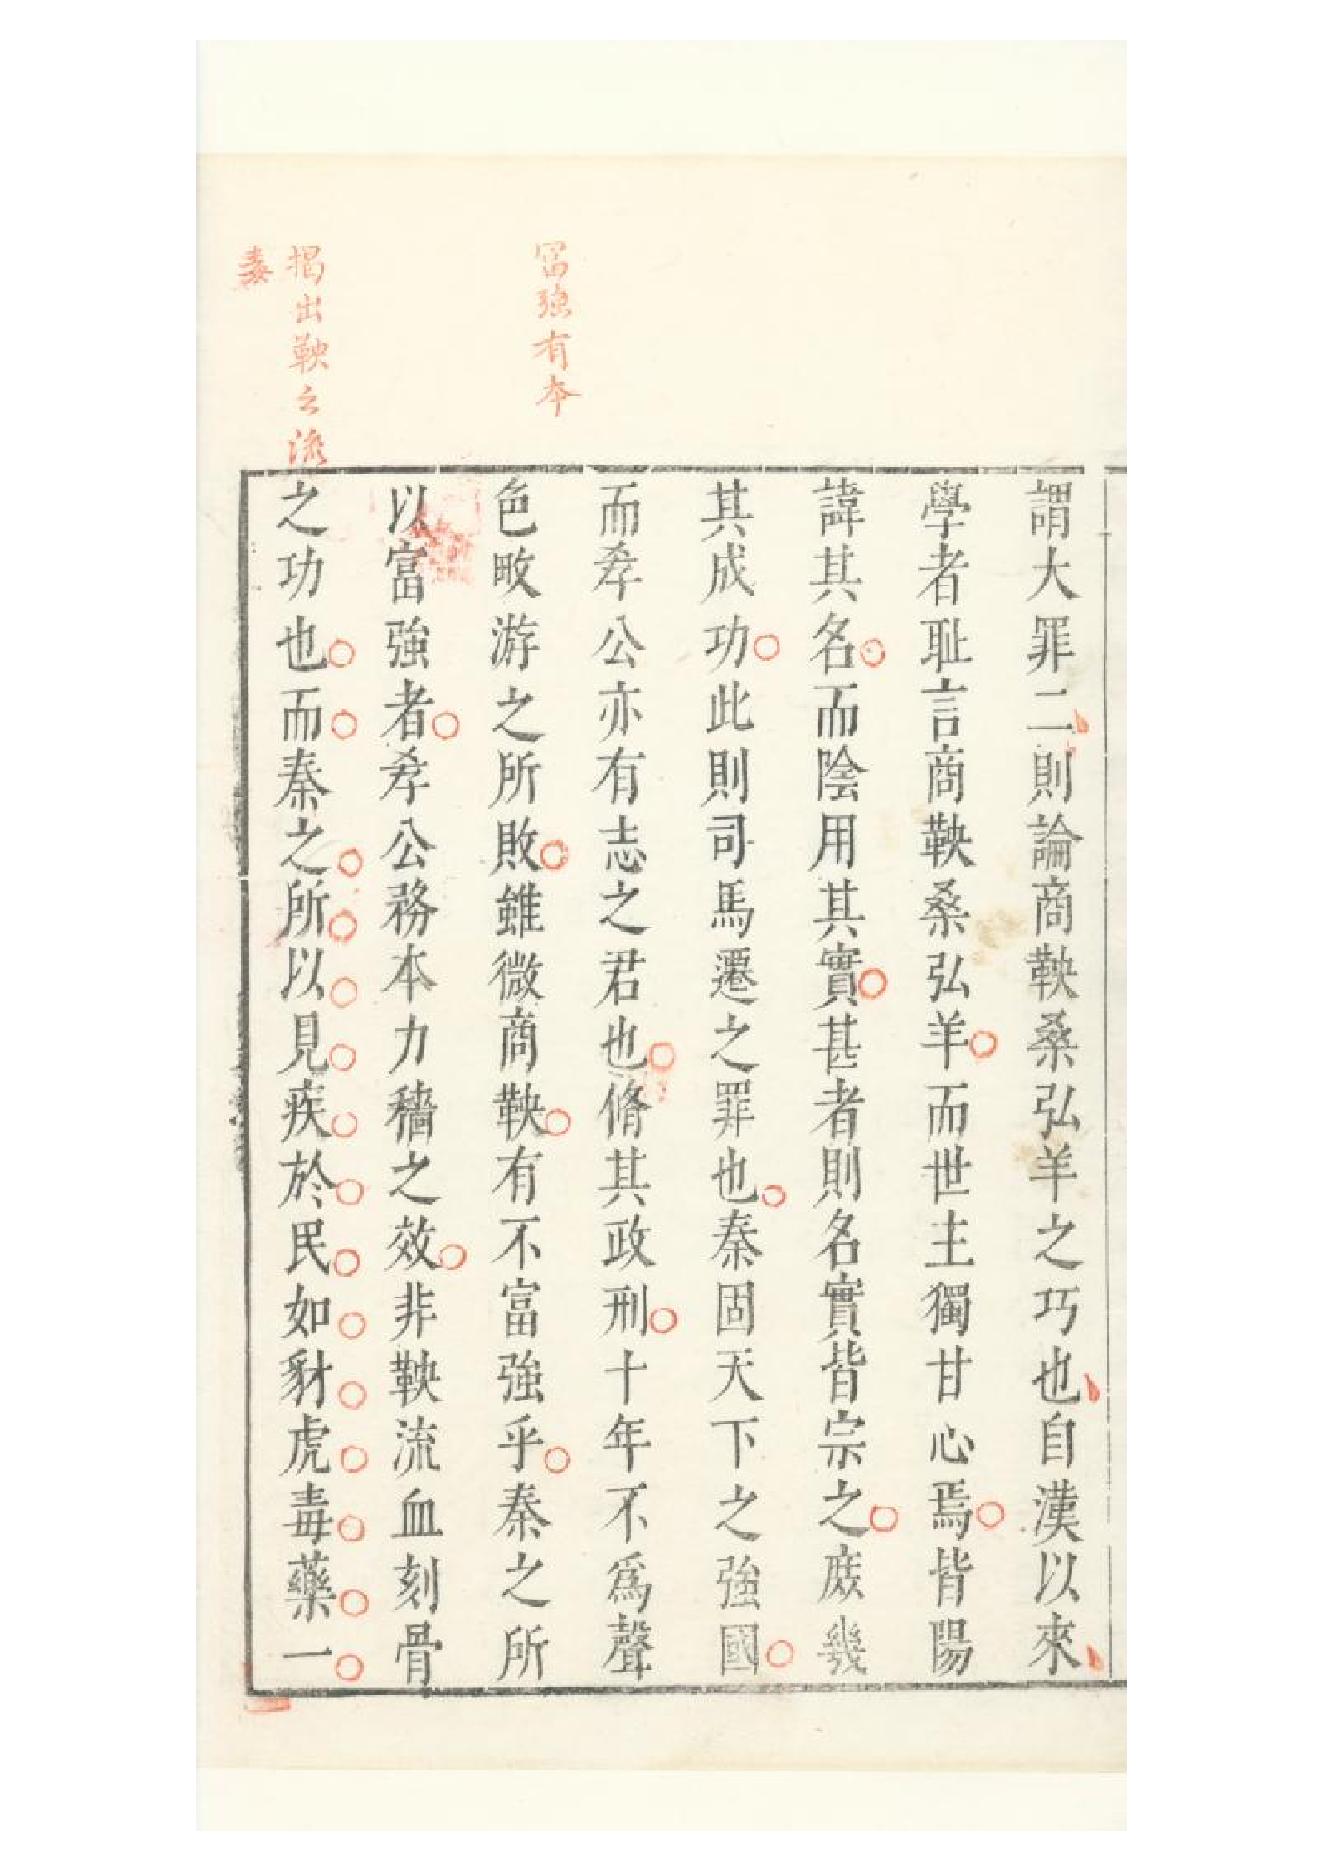 富強有本
揭出鞅之流
毒
謂大罪二則論商鞅桑弘羊之巧也自漢以來
學者耻言商鞅桑弘羊而世主獨甘心焉皆陽
諱其名而陰用其實甚者則名實皆宗之庻幾
其成功此則司馬遷之罪也秦固天下之強國
而孝公亦有志之君也脩其政刑十年不爲聲
色畋游之所敗雖微商鞅有不富強乎秦之所
以富強者孝公務本力穡之效非鞅流血刻骨
之功也而秦之所以見疾於民如豺虎毒藥一